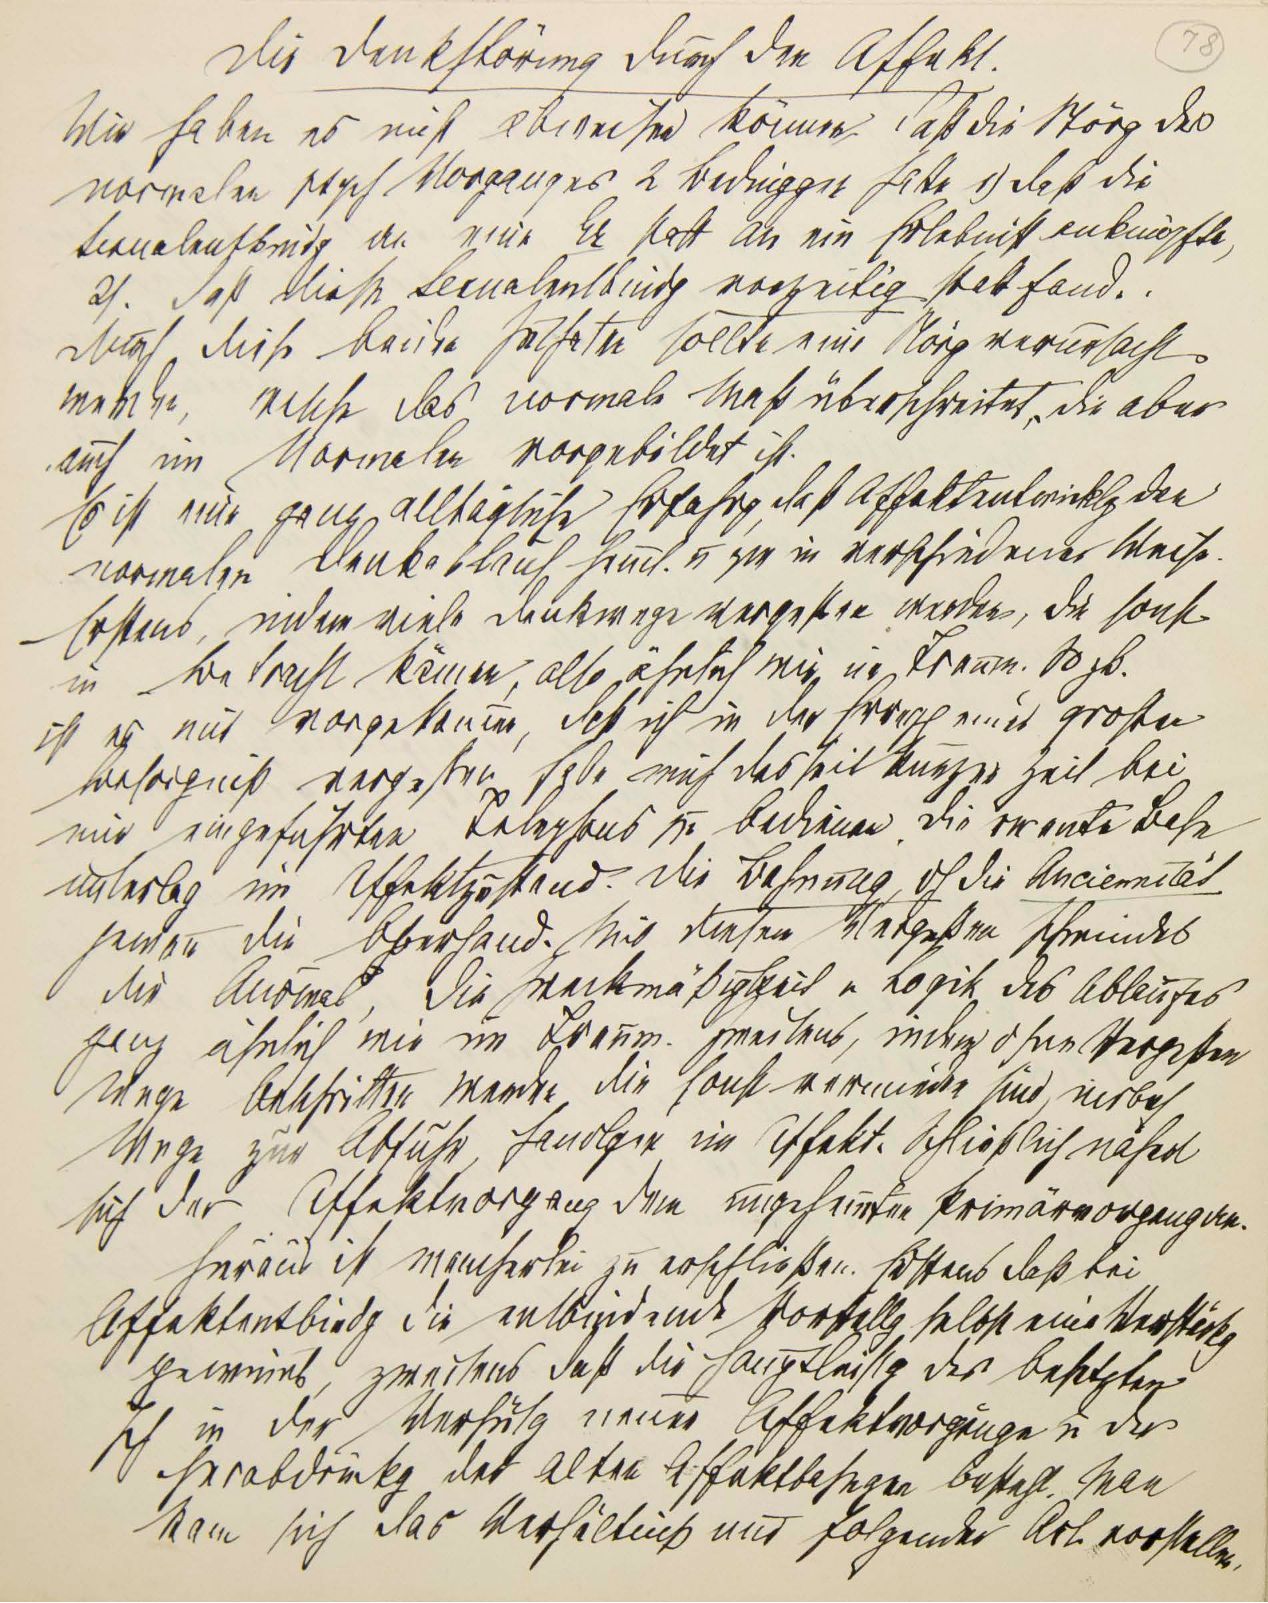 Die Denkstörung durch den Affekt.
78
Wir haben es nicht abweisen können, daß die Störg des
normalen psych Vorganges 2 Bedinggen hatte 1) daß die
Sexualentbindg an eine Er statt an ein Erlebniß anknüpfte,
2). daß diese Sexualentbindg vorzeitig stattfand. .
Durch diese beiden Zuthaten sollte eine Störg verursacht
werden, welche das normale Maß überschreitet, die aber
auch im Normalen vorgebildet ist.
Es ist eine ganz alltägliche Erfahrg, daß Affektentwicklg den
normalen Denkablauf hemt. u zw in verschiedener Weise.
Erstens, indem viele Denkwege vergessen werden, die sonst
in Betracht kämen, also ähnlich wie im Traum. So zB.
ist es mir vorgekommen, daß ich in der Erregg einer großen
Besorgniß vergessen habe mich des seit kurzer Zeit bei
mir eingeführten Telephons zu bedienen. Die recente Bahn
unterlag im Affektzustand. Die Bahnung, dh die Anciennität
gewann die Oberhand. Mit diesem Vergessen schwindet
die Auswahl, die Zweckmäßigkeit u Logik des Ablaufes
ganz ähnlich wie im Traum. Zweitens, indem ohne Vergessen
Wege beschritten werden die sonst vermieden sind, insbes
Wege zur Abfuhr, Handlgen im Affekt. Schließlich nähert
sich der Affektvorgang dem ungehemmten Primärvorgang an.
Hieraus ist mancherlei zu erschließen. Erstens daß bei
Affektentbindg die entbindende Vorstellg selbst eine Verstärkg
gewinnt, zweitens daß die Hauptleistg des besetzten
Ich in der Verhütg neuer Affektvorgänge u der
Herabdrückg der alten Affektbahngen besteht. Man
kann sich das Verhältniß nur folgender Art vorstellen.